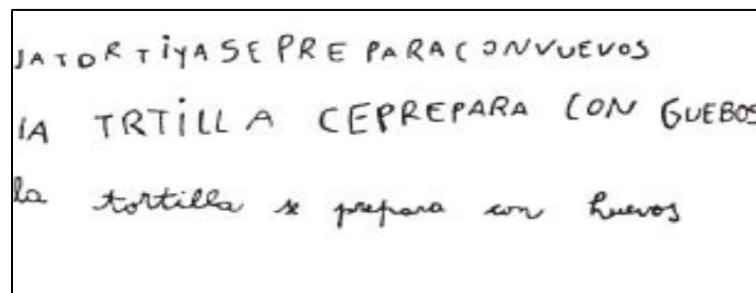 JATORTiYASE PRE PARACONVUEVOS
IA TRTiLLA CEPREPARA CON GUEBOS
la tortilla se prepara con huevos